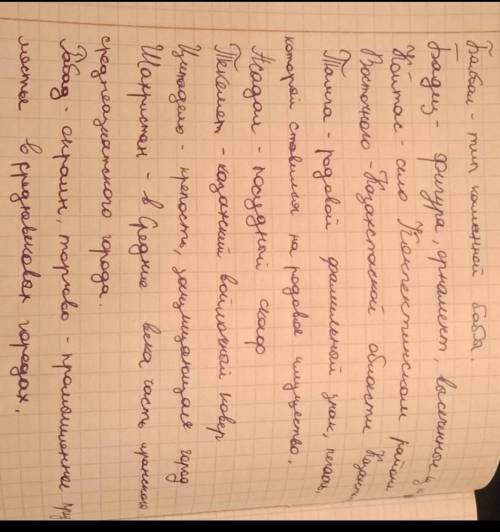 Балбал - тип каменной бабы.
Бадиз - фигура, орнамент, высеченные
Койтас - село Кокпектинском районе
Восточного - Казахстанской области Казахст
Тамга - родовой фамильный знак, печать,
которой ставился на родовое имущество.
Асадал - посудный шкаф
Текемет - казахский войлочный ковер
Цитадель - крепость, защищающая город
Шахристан - в Средние века часть иранского
среднеазиатского города.
Рабад - окраин, торгово - промышленное
местье в средневековых городах.